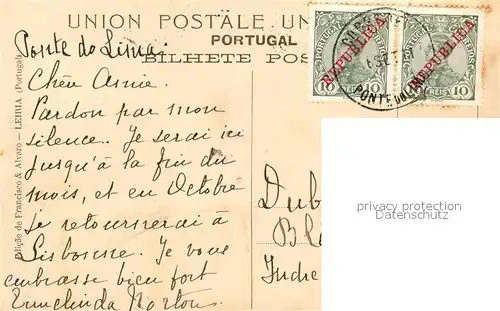 UNION POSTALE UN
PORTUGAL
BILHETE POS
Ponte do Lima
Chère Amie.
Pardon par mon
silence. Je serai ici
jusqu'à la fin du
mois, et en Octobre
je retournerai à
Lisbonne. Je vous
embrasse bien fort
Ermelinda
Edição de Francisco & Alvaro — LEIRIA (Portugal)
PORTUGAL
REPUBLICA
10 REIS
PORTUGAL
REPUBLICA
REIS 10
SET
PONTE DO LI
privacy protection
Datenschutz
Dub
Bl
Indre